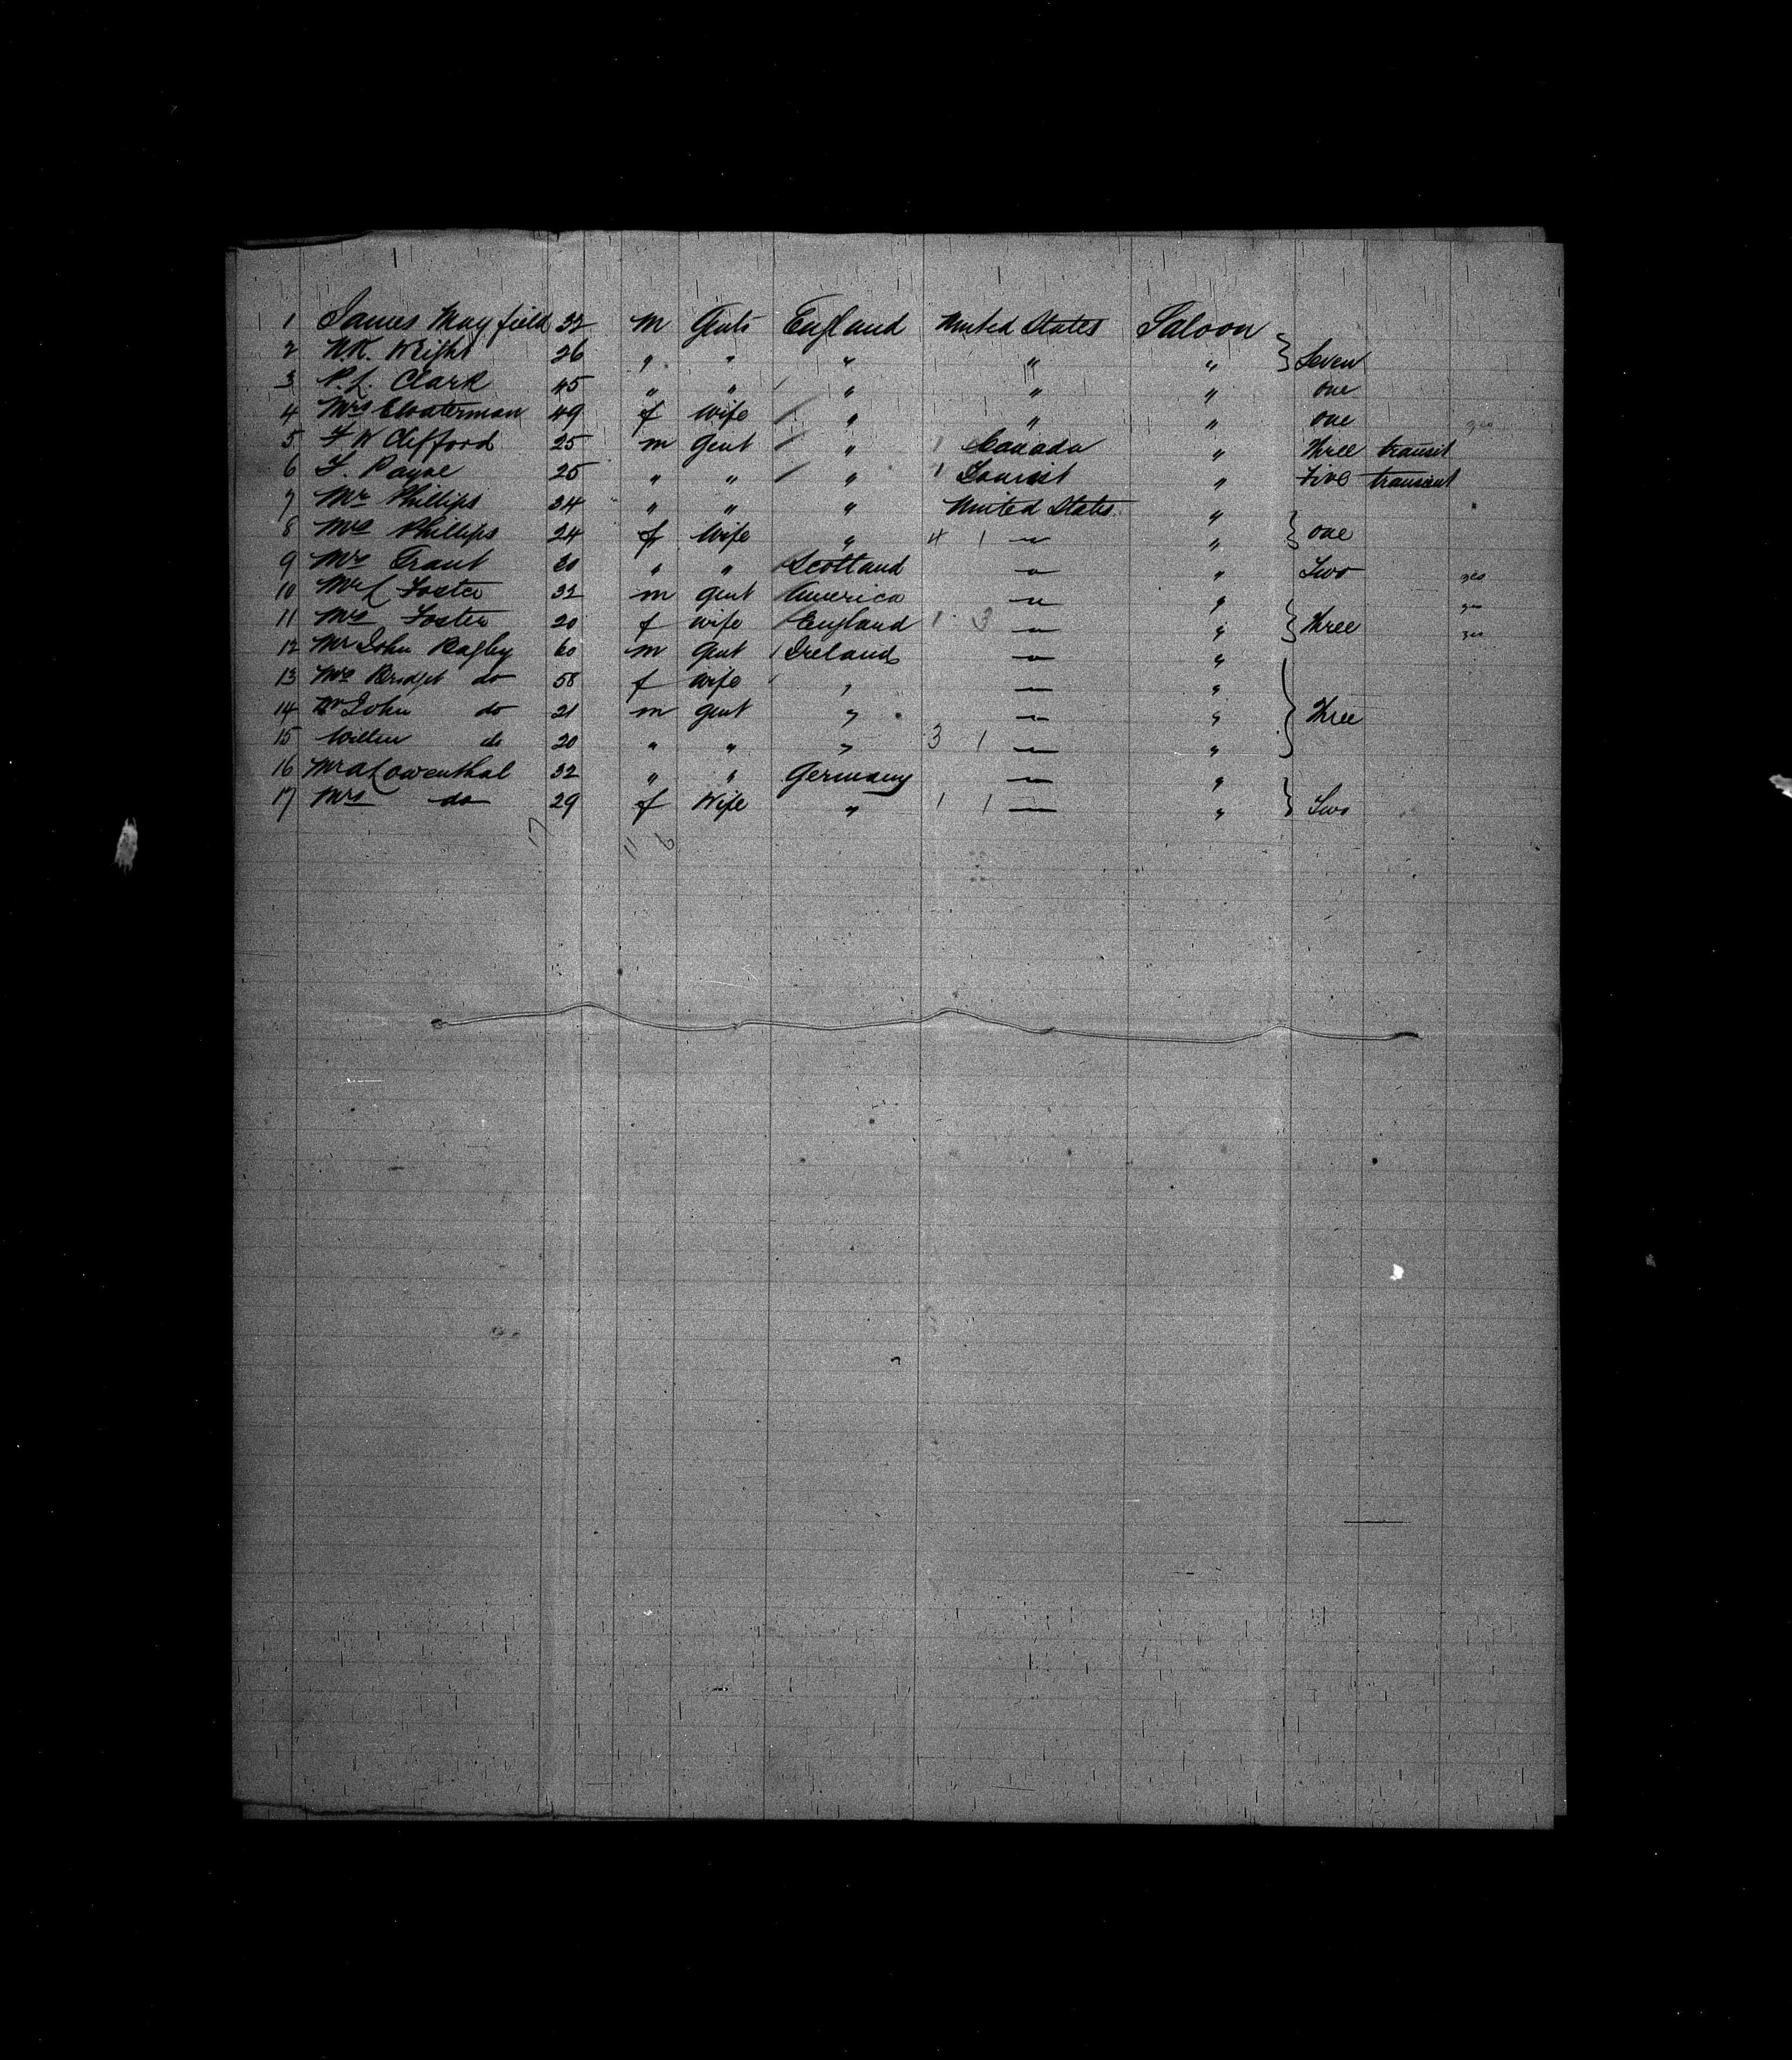 1 James Mayfield 32 m Gents England United States Saloon
2 26 " " " " " } Seven
3 P. L. Clark 45 " " " " " one
4 Mrs Waterman 49 f wife " " " one yes
5 F W Clifford 25 m gent " 1 Canada " Three transit
6 F. Payne 25 " " " 1 Tourist " Five transient
7 Mr Phillips 34 " " " United States "
8 Mrs Phillips 24 f Wife " 4 1 " " } one
9 Mrs Grant 30 " " Scotland " " Two yes
10 Mr Foster 32 m gent America " " yes
11 Mrs Foster 20 f wife England 1 3 " " } Three yes
12 Mr John Bagby 60 m gent Ireland " "
13 Mrs Bridget do 58 f wife " " "
14 John do 21 m gent " " " } Three
15 do 20 " " " 3 1 " "
16 Mr A Lowenthal 32 " " Germany " "
17 Mrs do 29 f Wife " 1 1 " " } Two
17 11 6